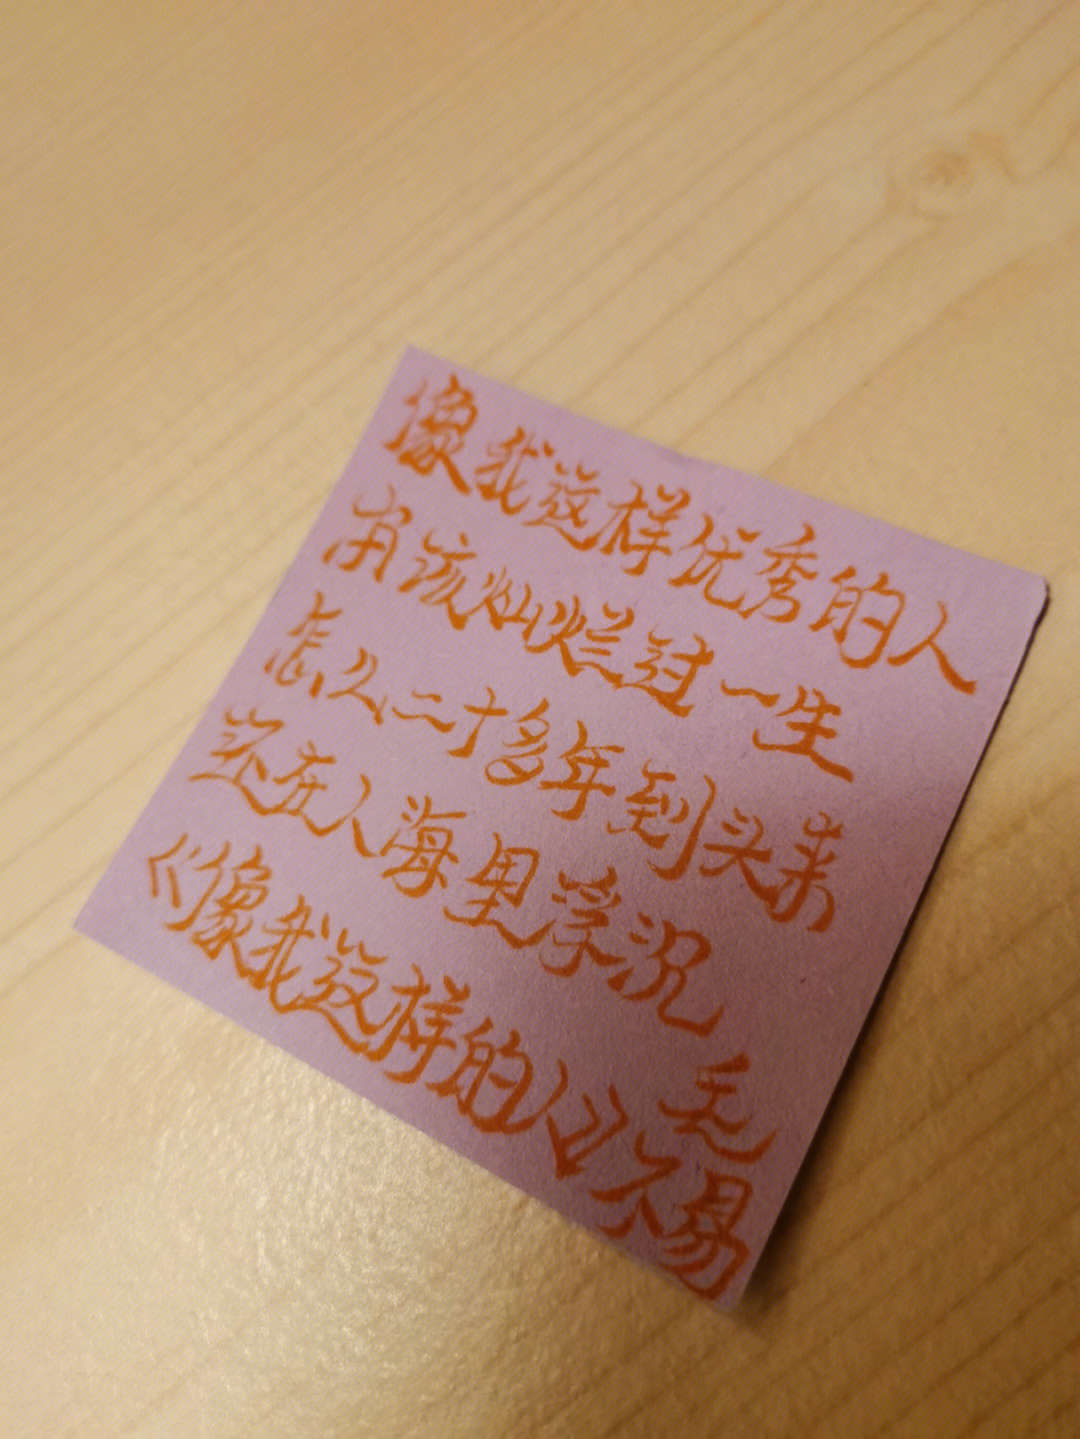 像我这样优秀的人
该灿烂过一生
怎么二十多年到头来
还在人海里浮沉
《像我这样的人》毛不易